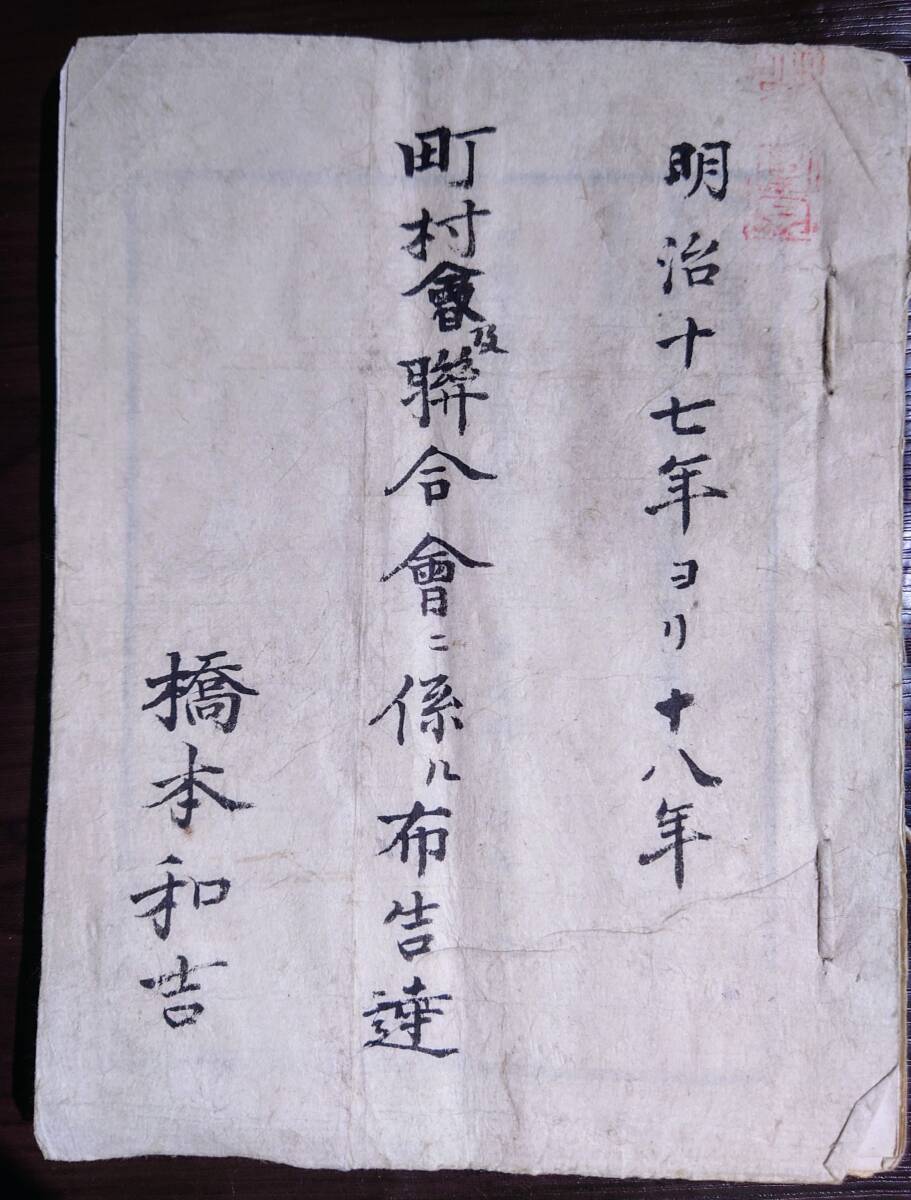 明治十七年ヨリ十八年
町村會及聯合會ニ係ル布告達
橋本和吉